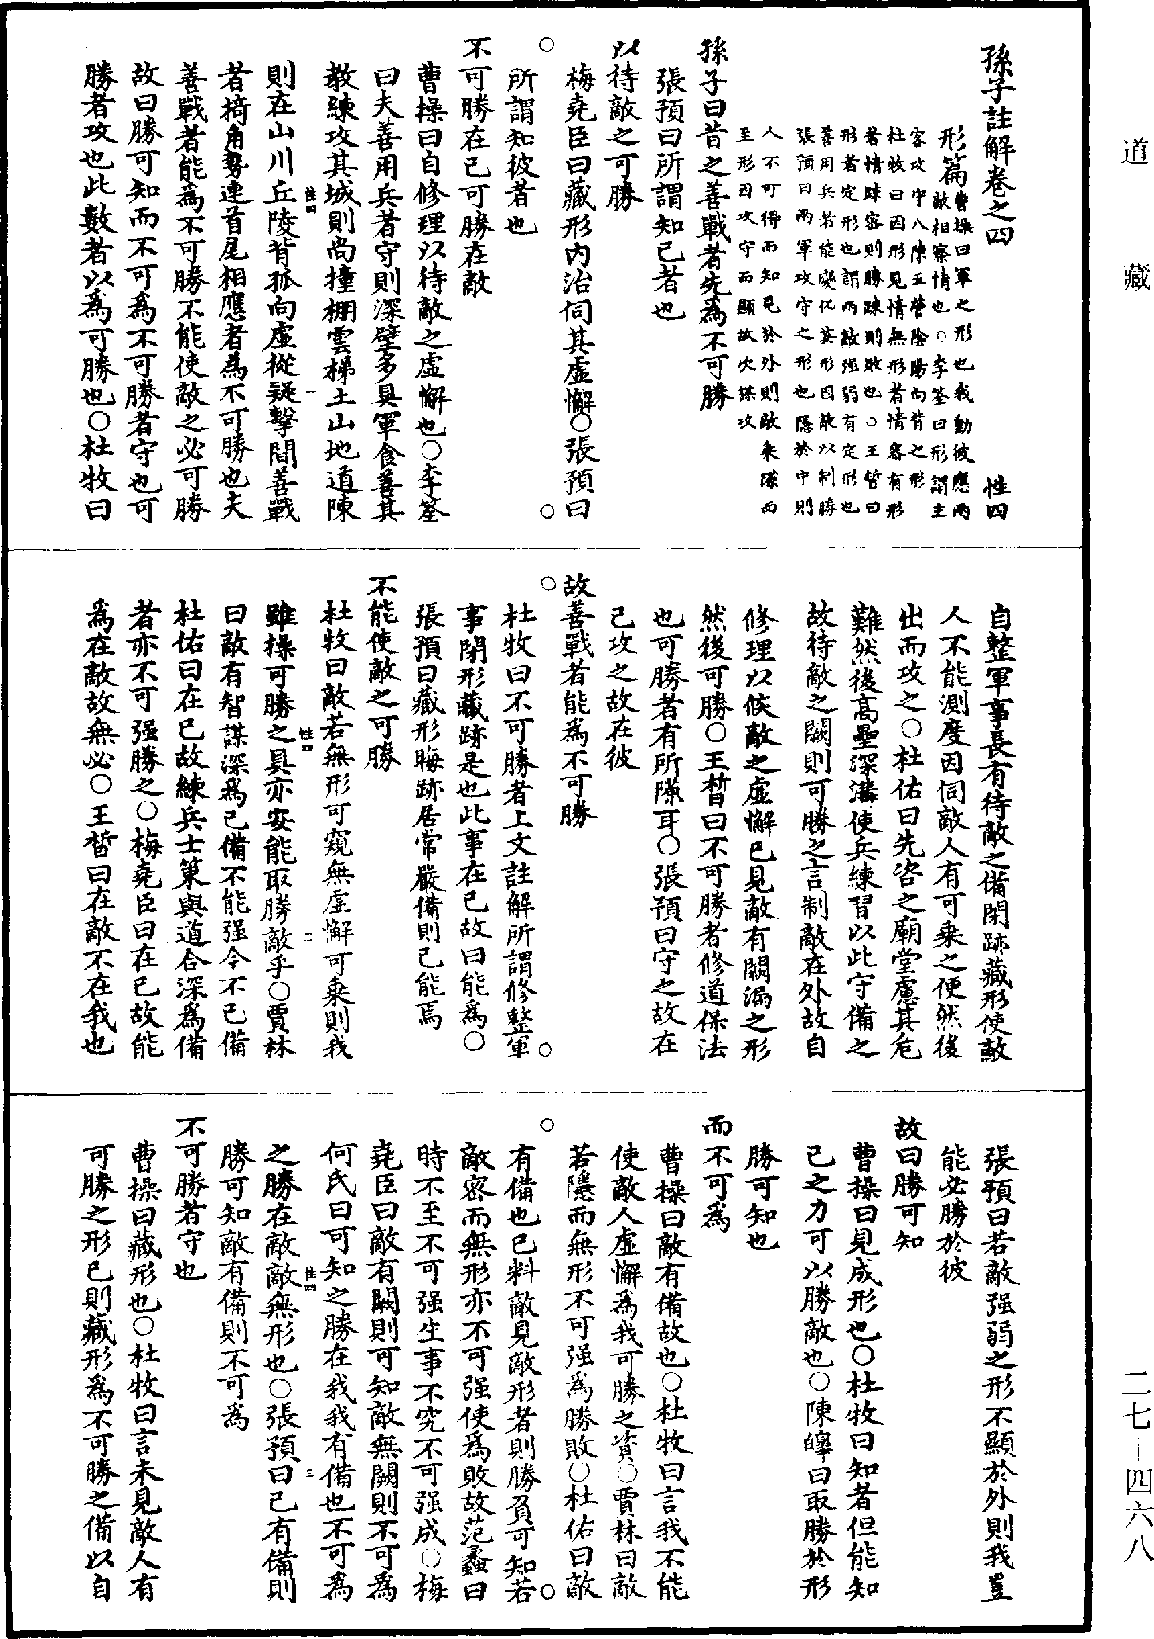 道藏
二七—四六八
孫子註解卷之四
性四
形篇
曹操曰軍之形也我動彼應兩
敵相察情也○李筌曰形謂主
客攻守八陳五營陰陽向背之形
杜牧曰因形見情無形者情密有形
者情疎密則勝疎則敗也○王晳曰
形者定形也謂兩敵强弱有定形也
善用兵者能變化其形因敵以制勝
張預曰兩軍攻守之形也隱於中則
人不可得而知見於外則敵乘隙而
至形因攻守而顯故次謀攻
孫子曰昔之善戰者先為不可勝
張預曰所謂知己者也
以待敵之可勝
梅堯臣曰藏形內治伺其虛懈○張預曰
所謂知彼者也
不可勝在己可勝在敵
曹操曰自修理以待敵之虛懈也○李筌
曰夫善用兵者守則深壁多具軍食善其
教練攻其城則尚撞棚雲梯土山地道陳
則在山川丘陵背孤向虛從疑擊間善戰
者掎角勢連首尾相應者為不可勝也夫
善戰者能為不可勝不能使敵之必可勝
故曰勝可知而不可為不可勝者守也可
勝者攻也此數者以為可勝也○杜牧曰
性四
一
自整軍事長有待敵之備閉跡藏形使敵
人不能測度因伺敵人有可乘之便然後
出而攻之○杜佑曰先咨之廟堂慮其危
難然後高壘深溝使兵練習以此守備之
故待敵之闕則可勝之言制敵在外故自
修理以候敵之虛懈已見敵有闕漏之形
然後可勝○王晳曰不可勝者修道保法
也可勝者有所隙耳○張預曰守之故在
己攻之故在彼
故善戰者能為不可勝
杜牧曰不可勝者上文註解所謂修整軍
事閉形藏跡是也此事在己故曰能為○
張預曰藏形晦跡居常嚴備則己能焉
不能使敵之可勝
杜牧曰敵若無形可窺無虛懈可乘則我
雖操可勝之具亦安能取勝敵乎○賈林
曰敵有智謀深為己備不能强令不己備
杜佑曰在己故練兵士策與道合深為備
者亦不可强勝之○梅堯臣曰在己故能
為在敵故無必○王晳曰在敵不在我也
性四
二
張預曰若敵强弱之形不顯於外則我豈
能必勝於彼
故曰勝可知
曹操曰見成形也○杜牧曰知者但能知
己之力可以勝敵也○陳皥曰取勝於形
勝可知也
而不可為
曹操曰敵有備故也○杜牧曰言我不能
使敵人虛懈為我可勝之資○賈林曰敵
若隱而無形不可强為勝敗○杜佑曰敵
有備也已料敵見敵形者則勝負可知若
敵密而無形亦不可强使為敗故范蠡曰
時不至不可强生事不究不可强成○梅
堯臣曰敵有闕則可知敵無闕則不可為
何氏曰可知之勝在我我有備也不可為
之勝在敵敵無形也○張預曰己有備則
勝可知敵有備則不可為
不可勝者守也
曹操曰藏形也○杜牧曰言未見敵人有
可勝之形己則藏形為不可勝之備以自
性四
三